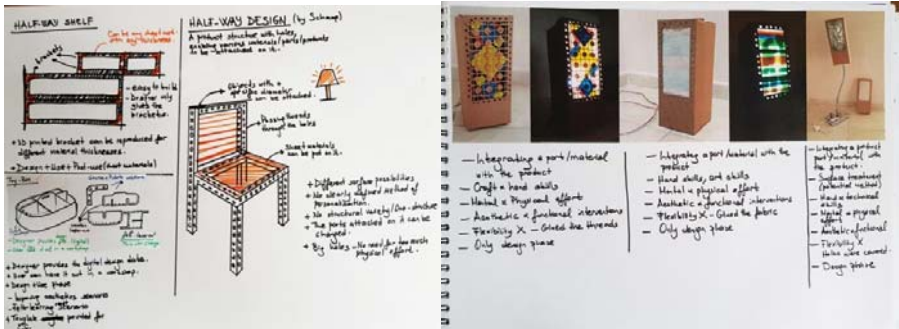 HALF-WAY SHELF
brackets
Can be any sheet mat.
any thickness.
- easy to build
- Designer only
gives the
brackets.
+ 3D printed bracket can be reproduced for
different material thicknesses.
+ Design + Use + Post-use
+ Designer provides the digital design data.
+ User can have it cut in a workshop.
+ Design + Use phase
HALF-WAY DESIGN (by Schaap)
A product structure with holes,
enabling various materials/parts/products
to be attached on it.
Objects with a
diameter
can be attached.
Passing threads
through the holes
Sheet materials
can be put on it.
+ Different surface possibilities
+ No clearly defined method of
personalization.
+ No structural variety/
+ The parts attached on it can be
changed.
+ Big holes - No need for too much
physical effort.
- Integrating a part/material
with the product
- Craft & hand skills
- Mental & Physical effort
- Aesthetic & functional interventions
- Flexibility X - Glued the threads
- Only design phase
- Integrating a part/material with the
product
- Hand skills, art skills
- Mental & physical effort
- Aesthetic & functional interventions
- Flexibility X - Glued the fabric
- Only design phase
- Integrating a product
part/material with
the product.
- Surface treatment
(potential method)
- Hand & technical
skills
- Mental & physical
effort
- Aesthetic & functional
- Flexibility X
Holes were covered.
- Design phase